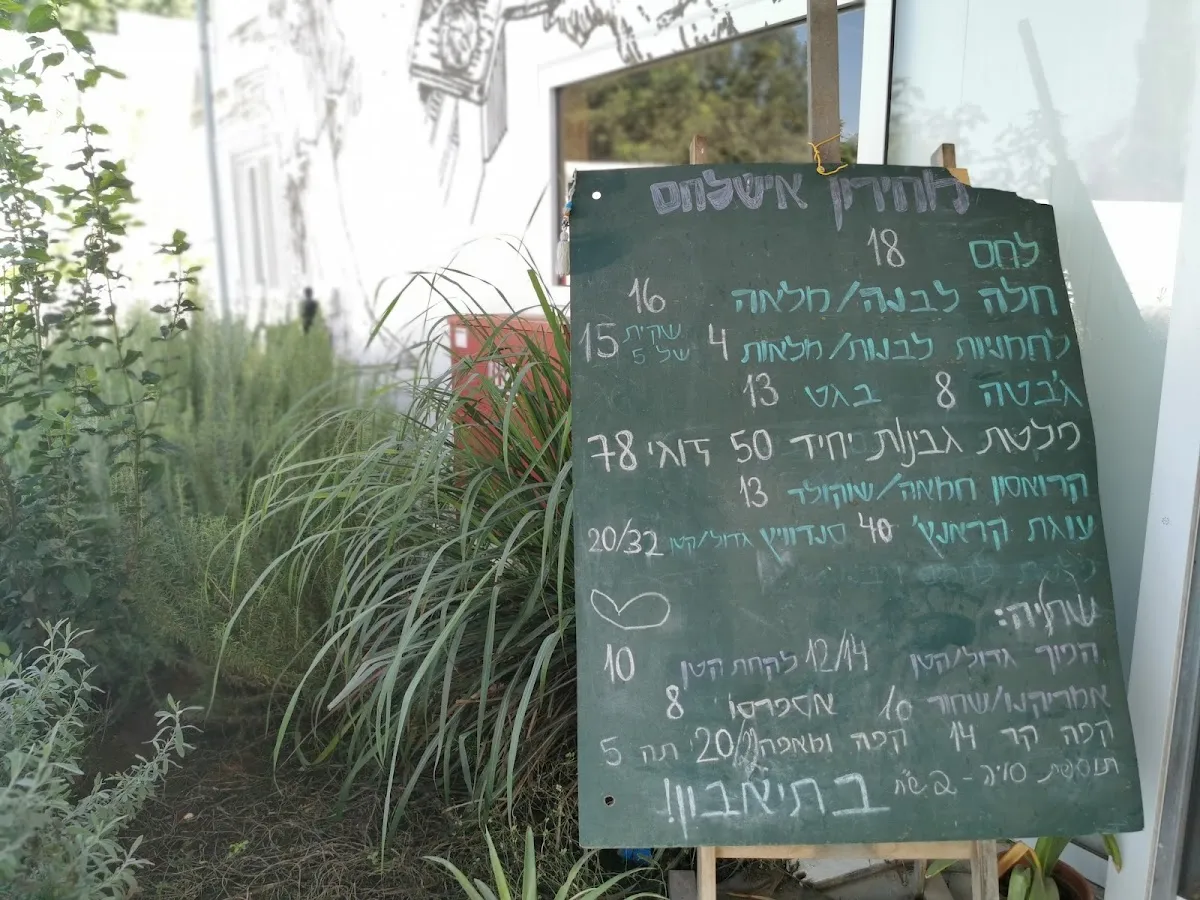 מחירון אישלחם
לחם 18
חלה לבנה/מלאה 16
לחמניות לבנות/מלאות 4 שקית של 5 15
ג'בטה 8 בגט 13
פלטת גבינות יחיד 50 זוגי 78
קרואסון חמאה/שוקולד 13
עוגת קראנץ' 40 סנדוויץ גדול/קטן 20/32
שתיה:
הפוך גדול/קטן 12/14 לקחת הקטן 10
אמריקנו/שחור 10 אספרסו 8
קפה קר 14 קפה ומאפה 20 תה 5
תוספת סויה - 2 ש"ח
בתיאבון!